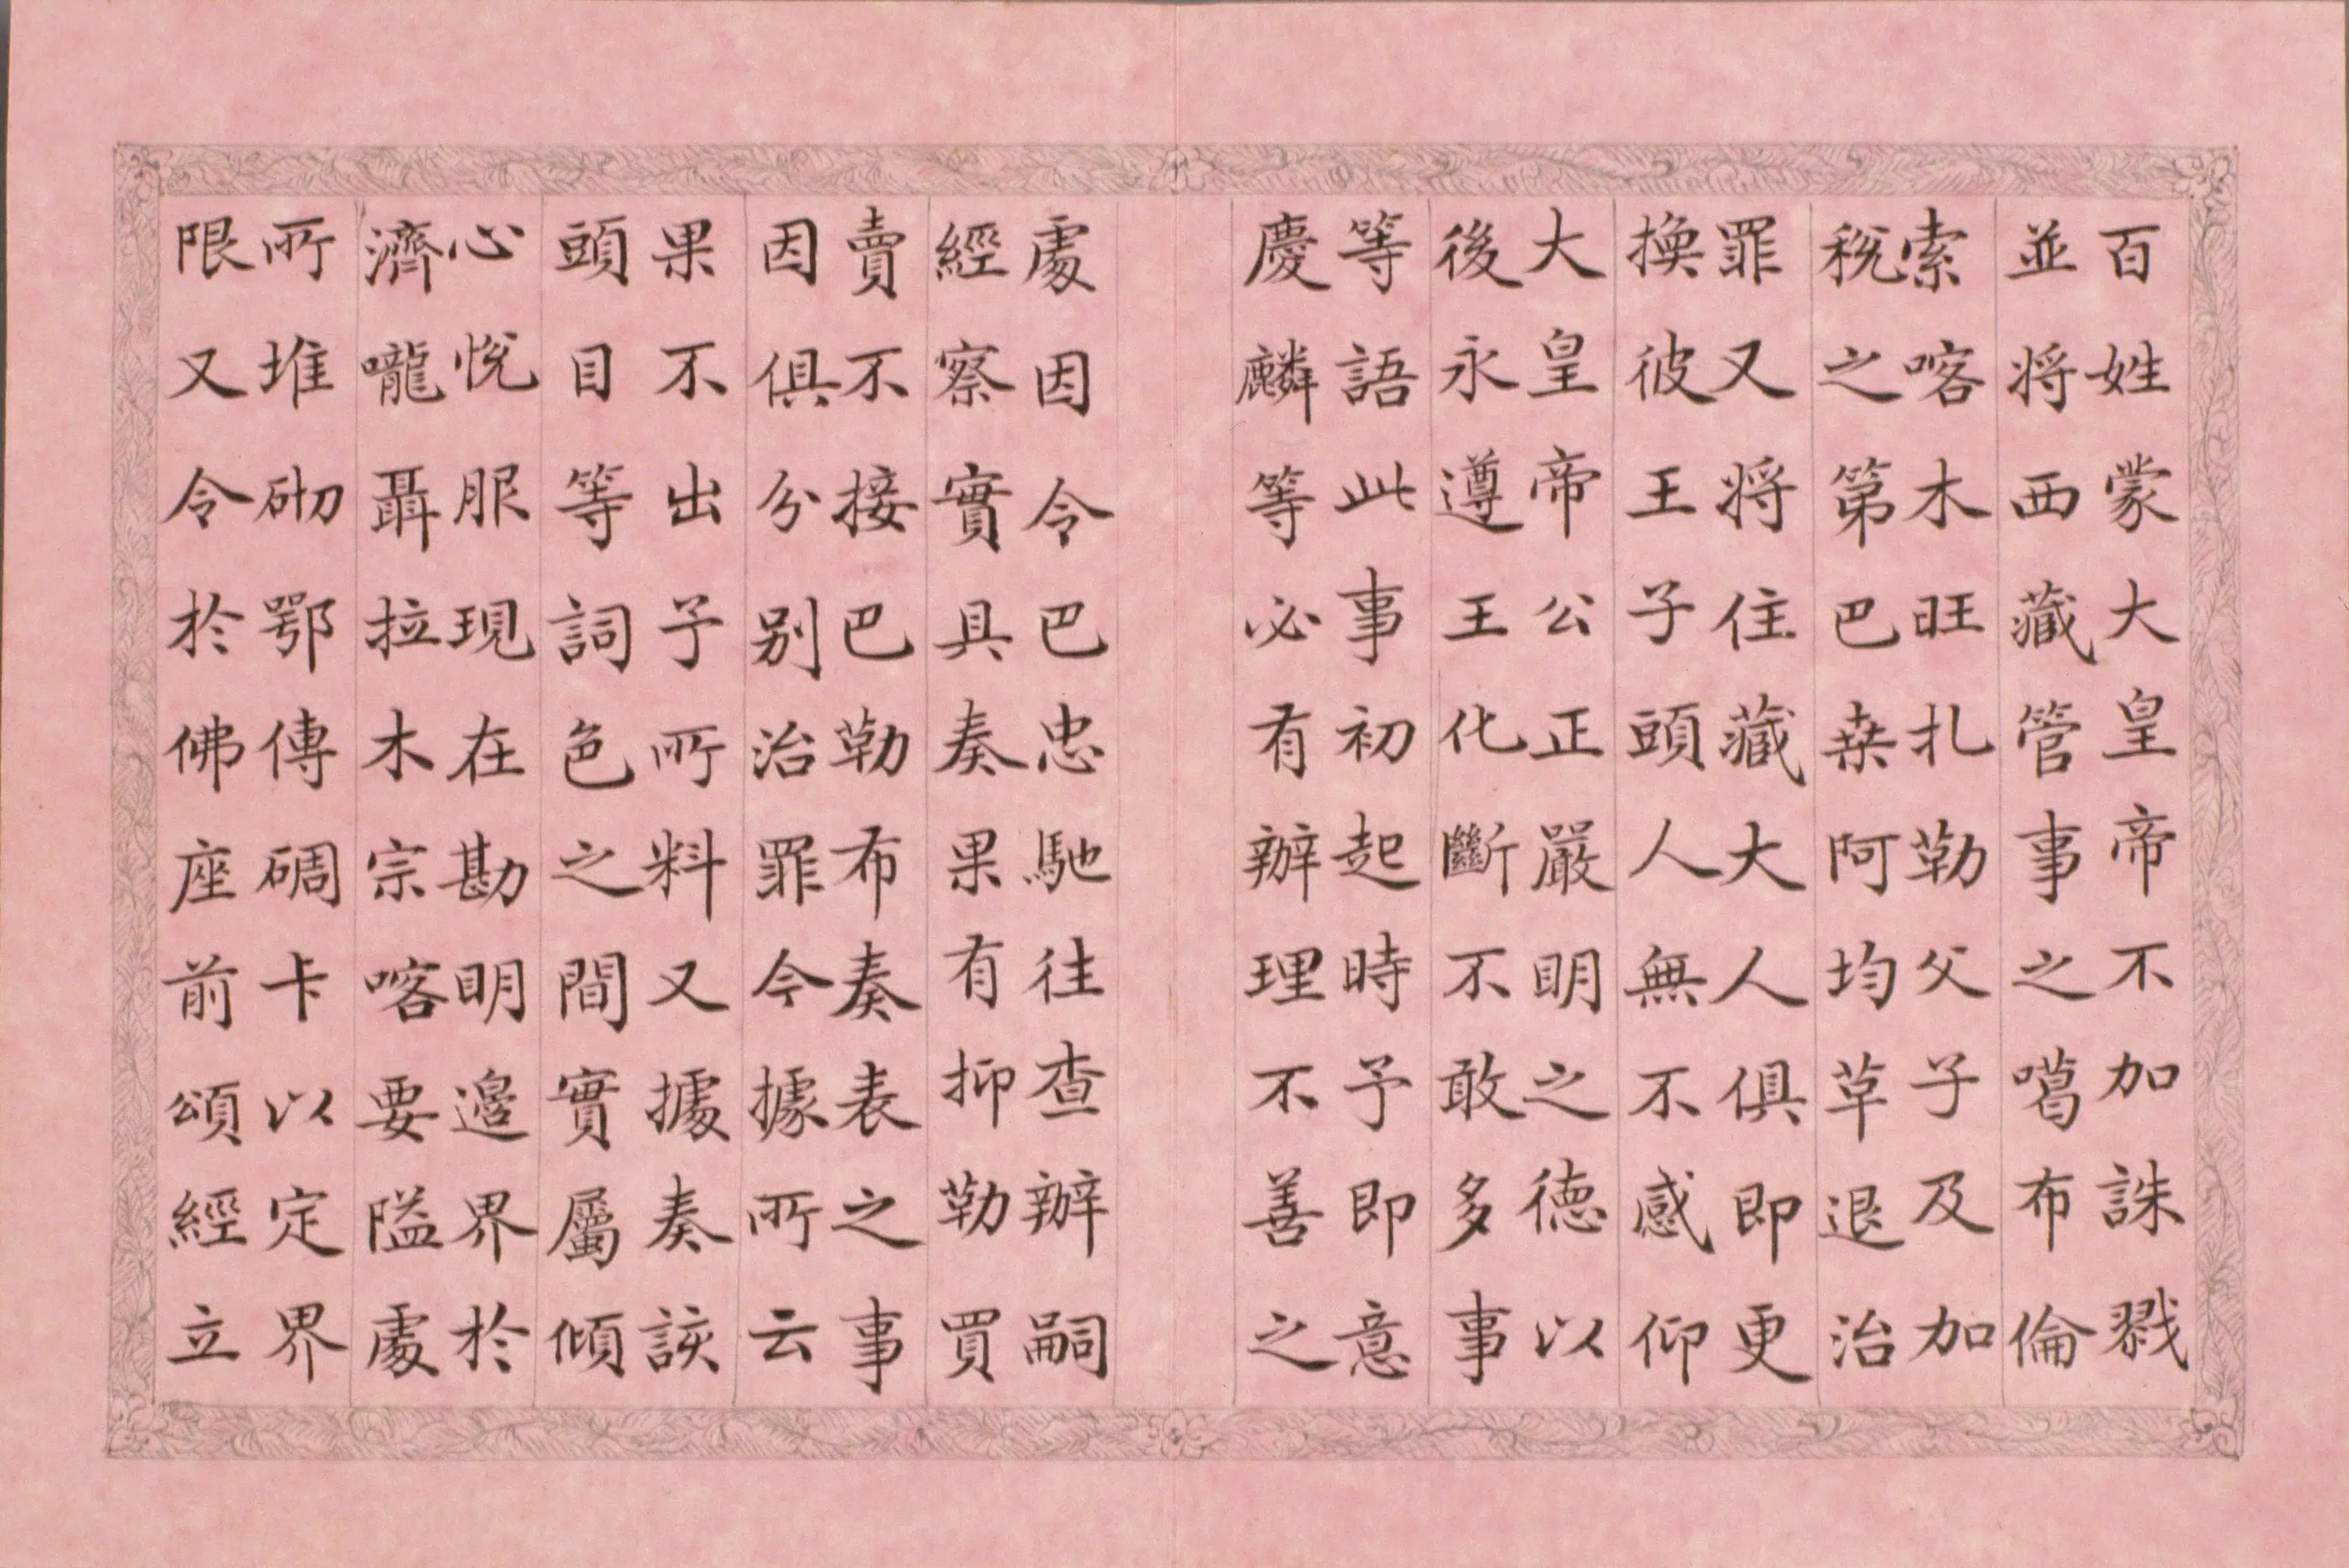 百姓蒙大皇帝不加誅戮
並将西藏管事之噶布倫
索喀木旺扎勒父子及加
稅之第巴桒阿均草退治
罪又将住藏大人俱即更
換彼王子頭人無不感仰
大皇帝公正嚴明之德以
後永遵王化斷不敢多事
等語此事初起時予即意
慶麟等必有辦理不善之
處因令巴忠馳往查辦嗣
經察實具奏果有抑勒買
賣不接巴勒布奏表之事
因俱分別治罪今據所云
果不出予所料又據奏該
頭目等詞色之間實屬傾
心悅服現在勘明邊界於
濟嚨聶拉木宗喀要隘處
所堆砌鄂傳碉卡以定界
限又令於佛座前頌經立